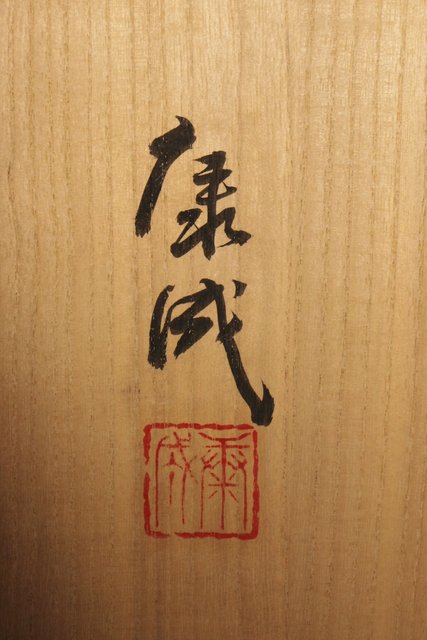 康成
康成